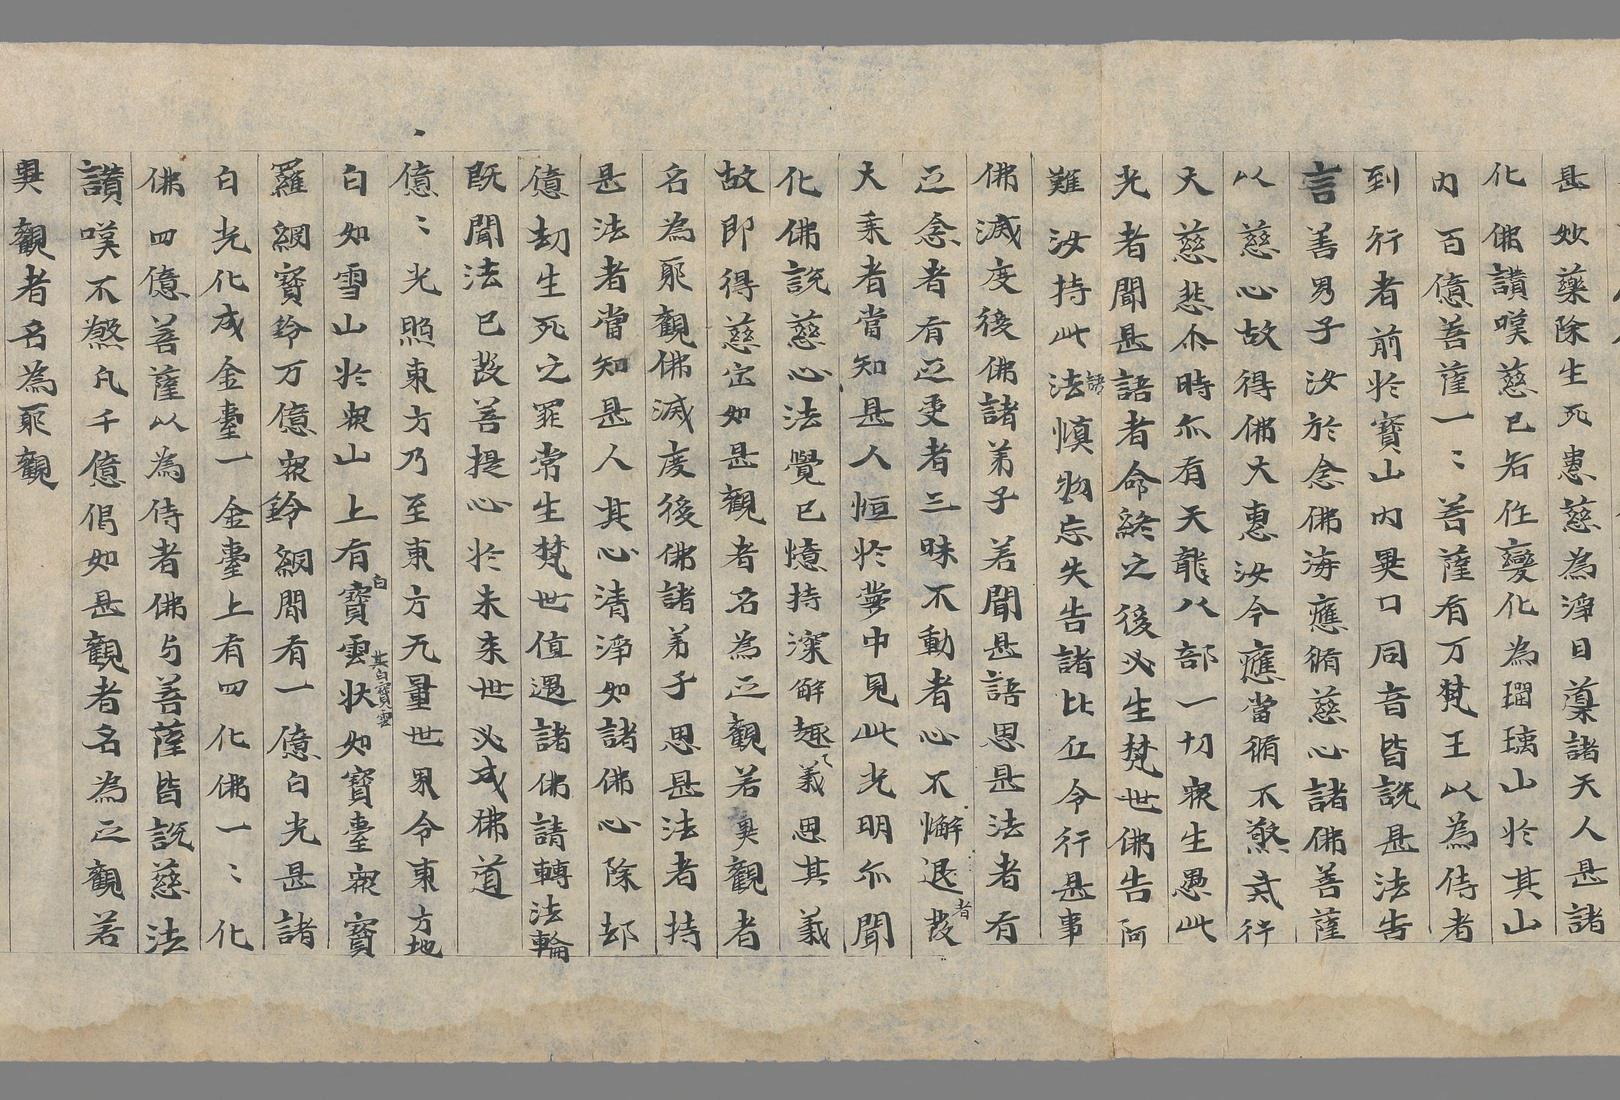 是妙藥除生死患慈為淨目導諸天人是諸
化佛讚嘆慈已各在變化為瑠璃山於其山
內百億菩薩一〻菩薩有万梵王以為侍者
到行者前於寶山內異口同音皆說是法告
言善男子汝於念佛海應脩慈心諸佛菩薩
以慈心故得佛大惠汝今應當脩不煞戒行
大慈悲尒時亦有天龍八部一切衆生愚此
光者聞是語者命終之後必生梵世佛告阿
難汝持此法語慎勿忘失告諸比丘令行是事
佛滅度後佛諸弟子若聞是語思是法者有
正念者有正受者三昧不動者心不懈退者發
大乘者當知是人恒於夢中見此光明亦聞
化佛說慈心法覺已憶持深解趣義思其義
故即得慈定如是觀者名為正觀若異觀者
名為耶觀佛滅度後佛諸弟子思是法者持
是法者當知是人其心清淨如諸佛心除却
億劫生死之罪常生梵世值遇諸佛請轉法輪
既聞法已發菩提心於未來世必成佛道
億〻光照東方乃至東方无量世界令東方地
白如雪山於衆山上有白寶雲狀其白寶雲如寶臺衆寶
羅網寶鈴万億衆鈴網間有一億白光是諸
白光化成金臺一金臺上有四化佛一〻化
佛四億菩薩以為侍者佛与菩薩皆說慈法
讚嘆不煞凡千億偈如是觀者名為正觀若
異觀者名為耶觀